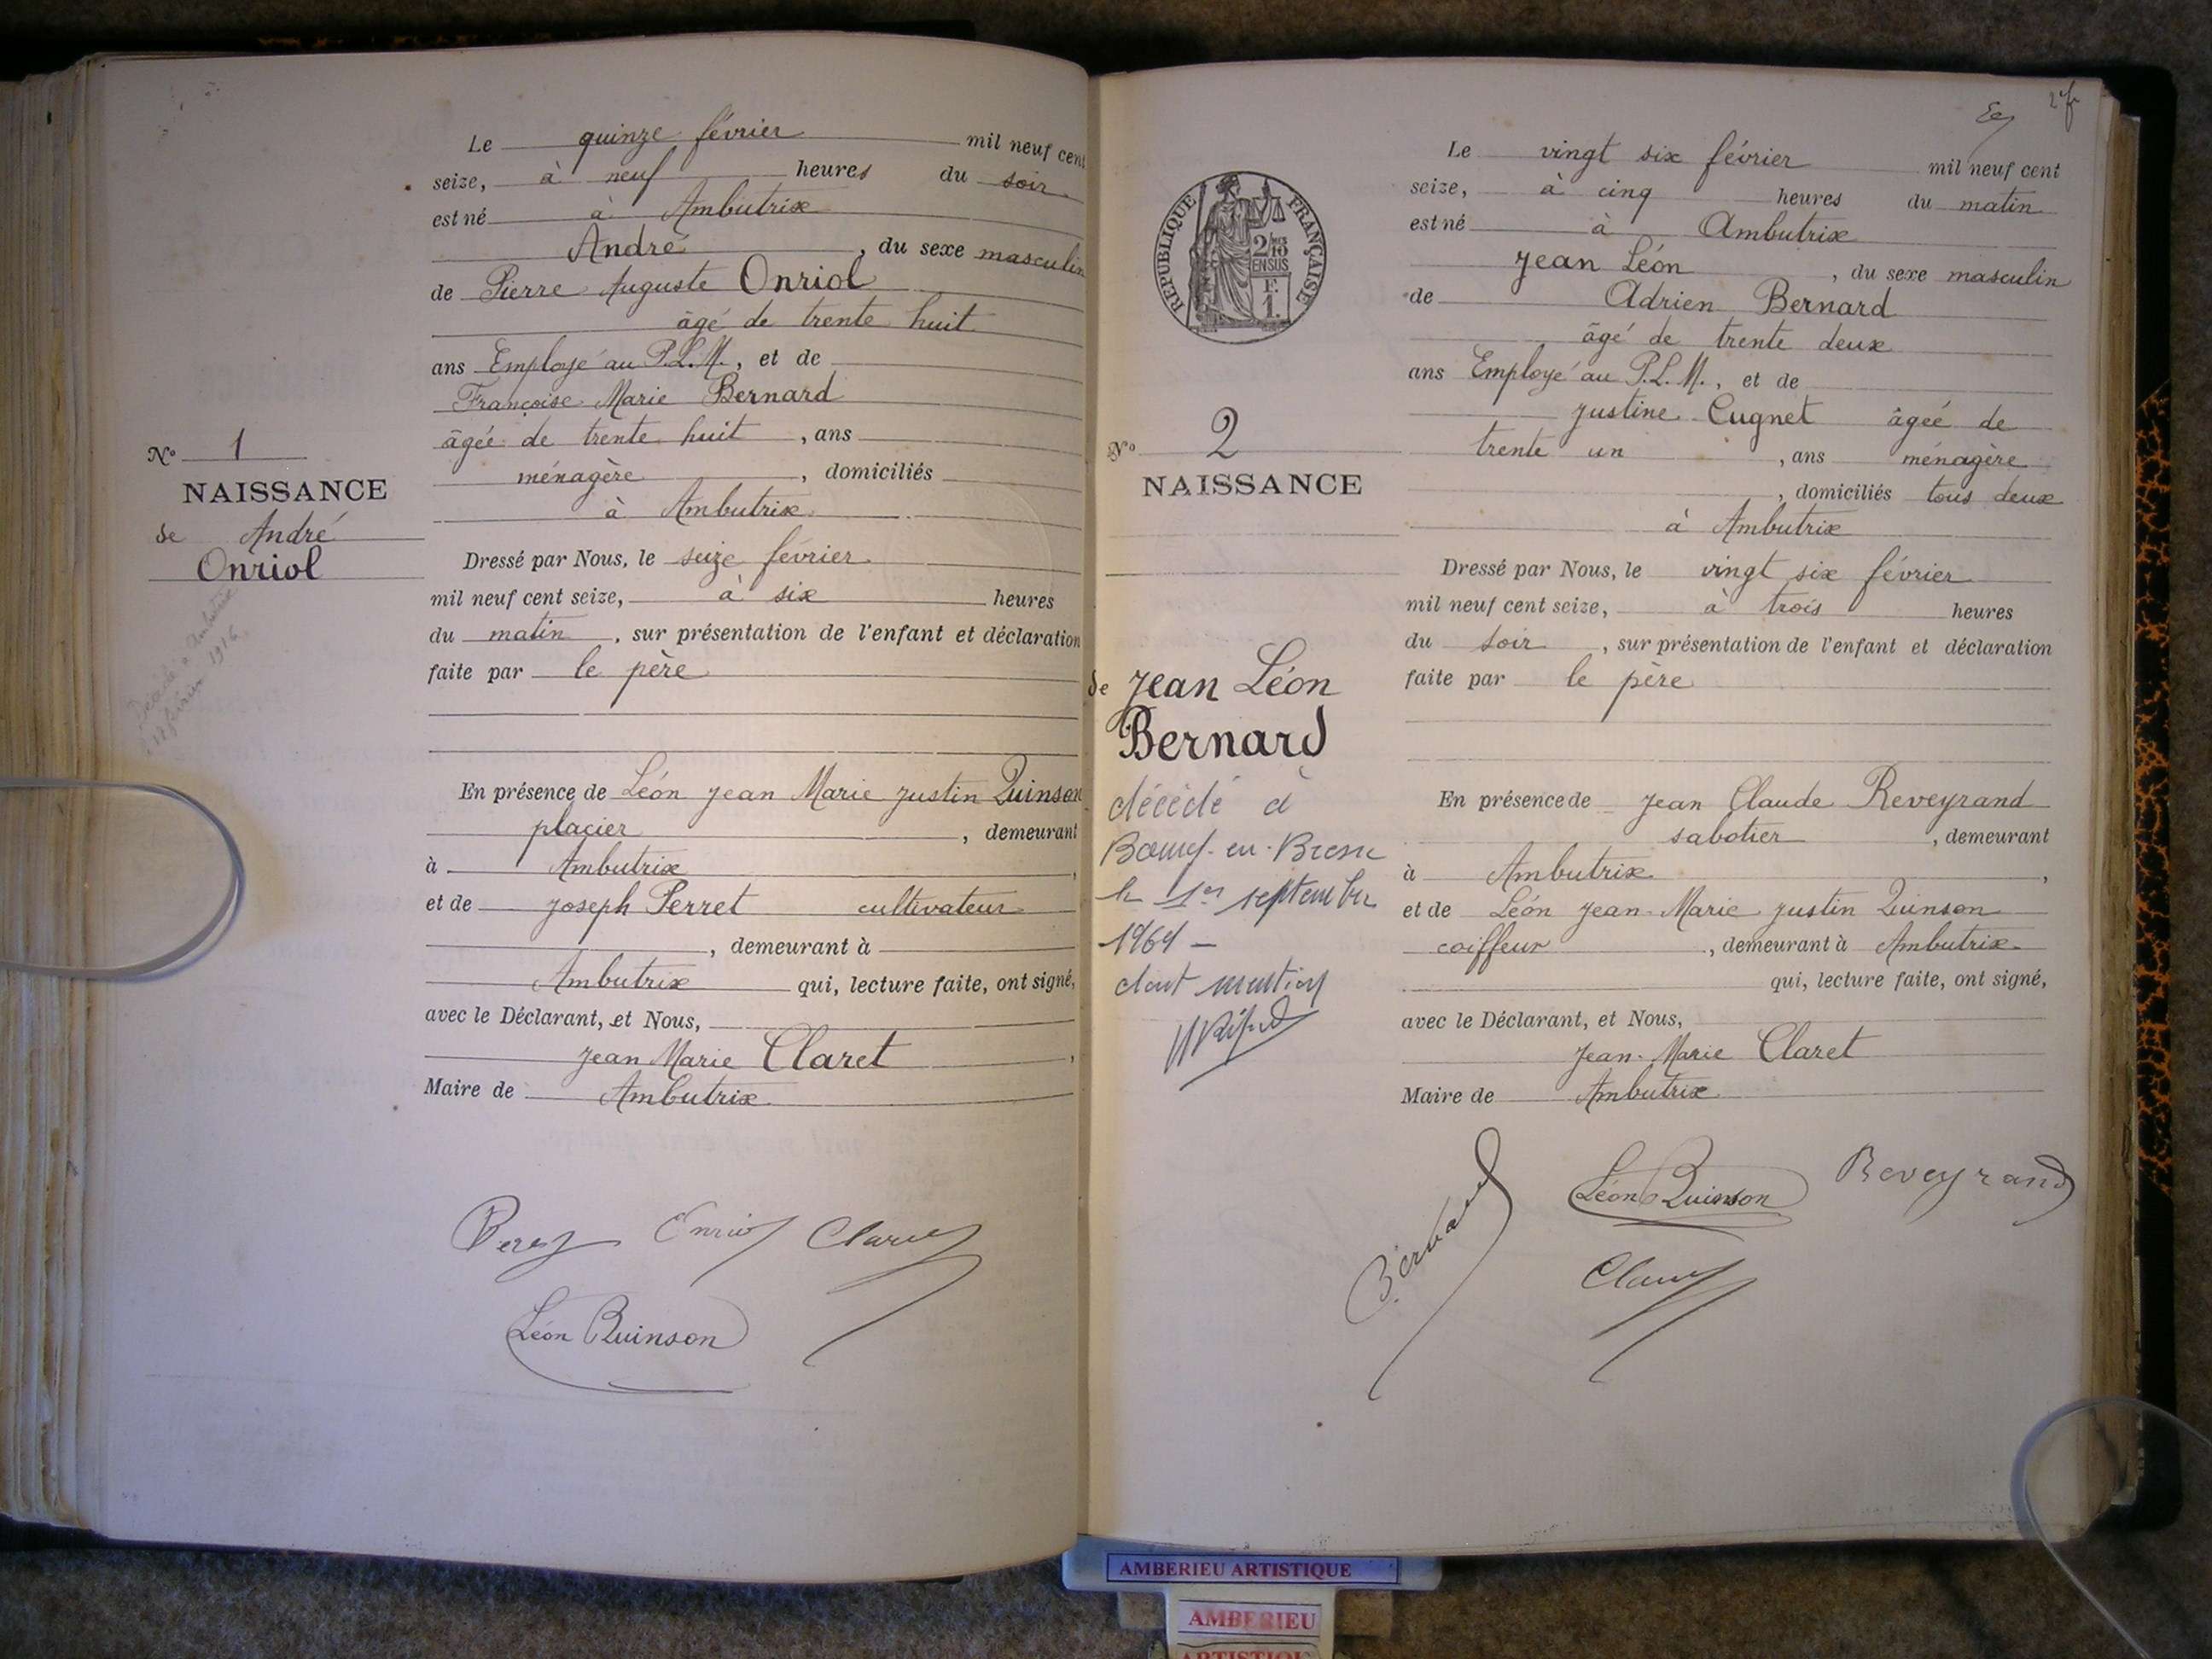 Le quinze février mil neuf cent
seize, à neuf heures du soir
est né à Ambutrix
André, du sexe masculin
de Pierre Auguste Onriol
âgé de trente huit
ans Employé au P.L.M., et de
Françoise Marie Bernard
âgée de trente huit, ans
ménagère, domiciliés
à Ambutrix
N° 1
NAISSANCE
de André
Onriol
Décédé à Ambutrix
février 1916
Dressé par Nous, le seize février
mil neuf cent seize, à six heures
du matin, sur présentation de l'enfant et déclaration
faite par le père
En présence de Léon Jean Marie Justin Quinson
placier, demeurant
à Ambutrix,
et de Joseph Perret cultivateur
, demeurant à
Ambutrix qui, lecture faite, ont signé,
avec le Déclarant, et Nous,
Jean Marie Claret,
Maire de Ambutrix
Léon Quinson
2
RÉPUBLIQUE FRANÇAISE
2/10
EN SUS
F.
1.
Le vingt six février mil neuf cent
seize, à cinq heures du matin
est né à Ambutrix
Jean Léon, du sexe masculin
de Adrien Bernard
âgé de trente deux
ans Employé au P.L.M., et de
Justine Cugnet âgée de
trente un, ans ménagère
, domiciliés tous deux
à Ambutrix
N° 2
NAISSANCE
de Jean Léon
Bernard
décédé à
Bourg-en-Bresse
le 1er septembre
1969 –
dont mention
Dressé par Nous, le vingt six février
mil neuf cent seize, à trois heures
du soir, sur présentation de l'enfant et déclaration
faite par le père
En présence de Jean Claude Reveyrand
sabotier, demeurant
à Ambutrix,
et de Léon Jean-Marie Justin Quinson
coiffeur, demeurant à Ambutrix
qui, lecture faite, ont signé,
avec le Déclarant, et Nous,
Jean-Marie Claret
Maire de Ambutrix
Bernard
Léon Quinson
Reveyrand
AMBERIEU ARTISTIQUE
AMBERIEU
ARTISTIQUE